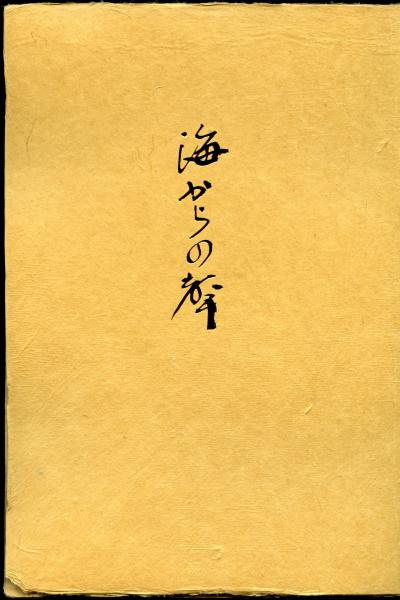 海からの聲